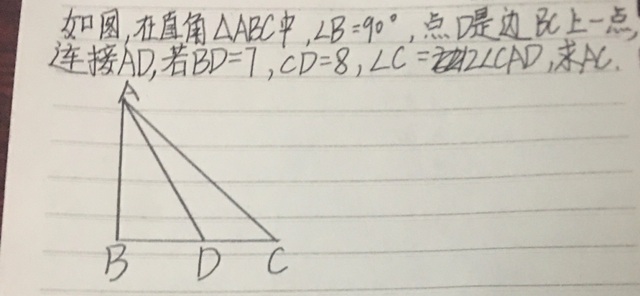 如图,在直角△ABC中,∠B=90°,点D是边BC上一点,
连接AD,若BD=7,CD=8,∠C=2∠CAD,求AC.
A
B D C